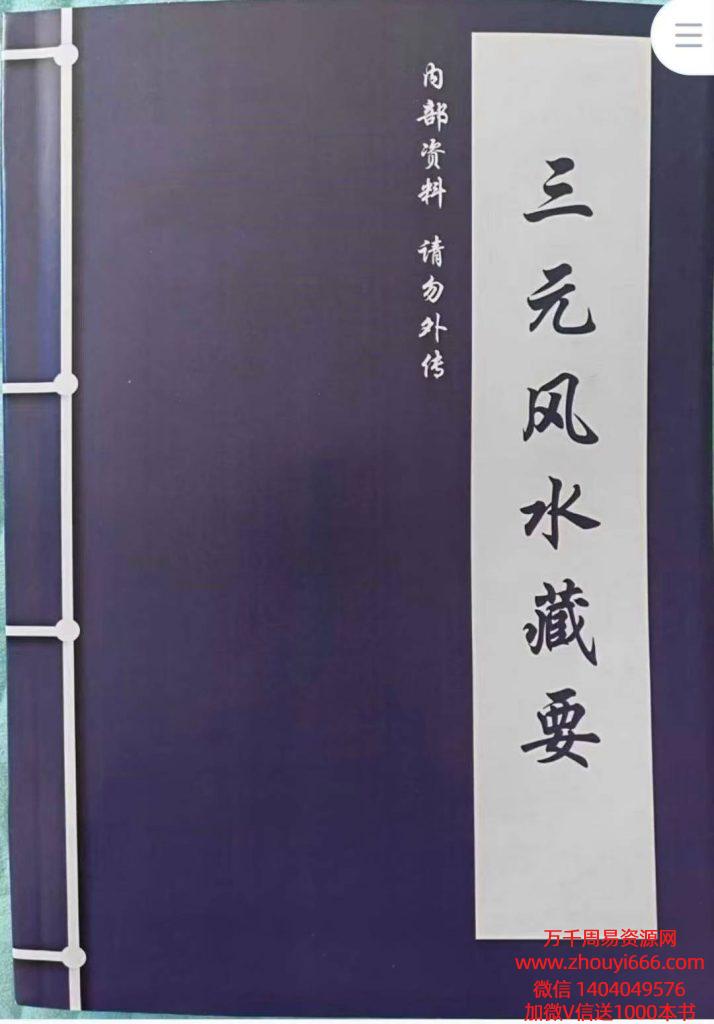 三元风水藏要
内部资料 请勿外传
万千周易资源网
www.zhouyi666.com
微信 1404049576
加微V信送1000本书